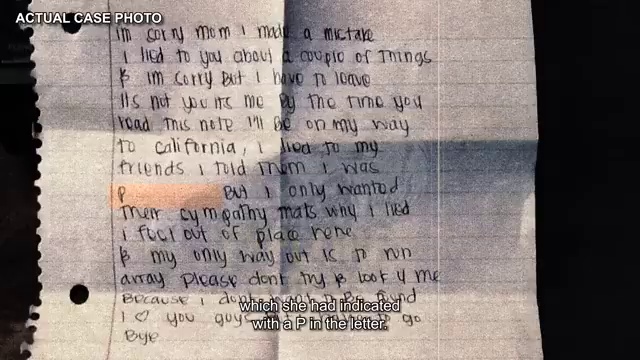 ACTUAL CASE PHOTO
im sorry mom i made a mistake
i lied to you about a couple of things
& im sorry but i have to leave
its not you its me By the time you
read this note i'll be on my way
to california, i lied to my
friends i told them i was
P But i only wanted
their cympathy thats why i lied
i feel out of place here
& my only way out is to run
array please dont try & look 4 me
Because i dont
which she had indicated
i ♡ you guys go
with a P in the letter.
Bye